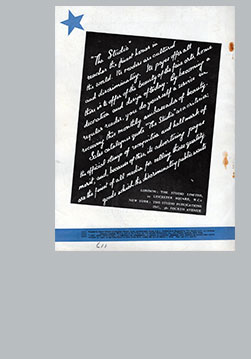 "The Studio"
reaches the finest houses in
the world. Its readers are cultured
and discriminating. Its pages offer all
there is to offer of the beauty of the fine arts, home
decoration and design of today. By becoming a
regular reader, you do yourself a service in
receiving this monthly ambassador of beauty.
Sales catalogued in "The Studio" are
the official stamp of recognition and hallmark of
merit and, because of this, its advertising pages
are the finest of all media for selling those quality
goods which the discriminating public wants
LONDON: THE STUDIO LIMITED,
LEICESTER SQUARE, W.C.2
NEW YORK: THE STUDIO PUBLICATIONS
INC., FOURTH AVENUE